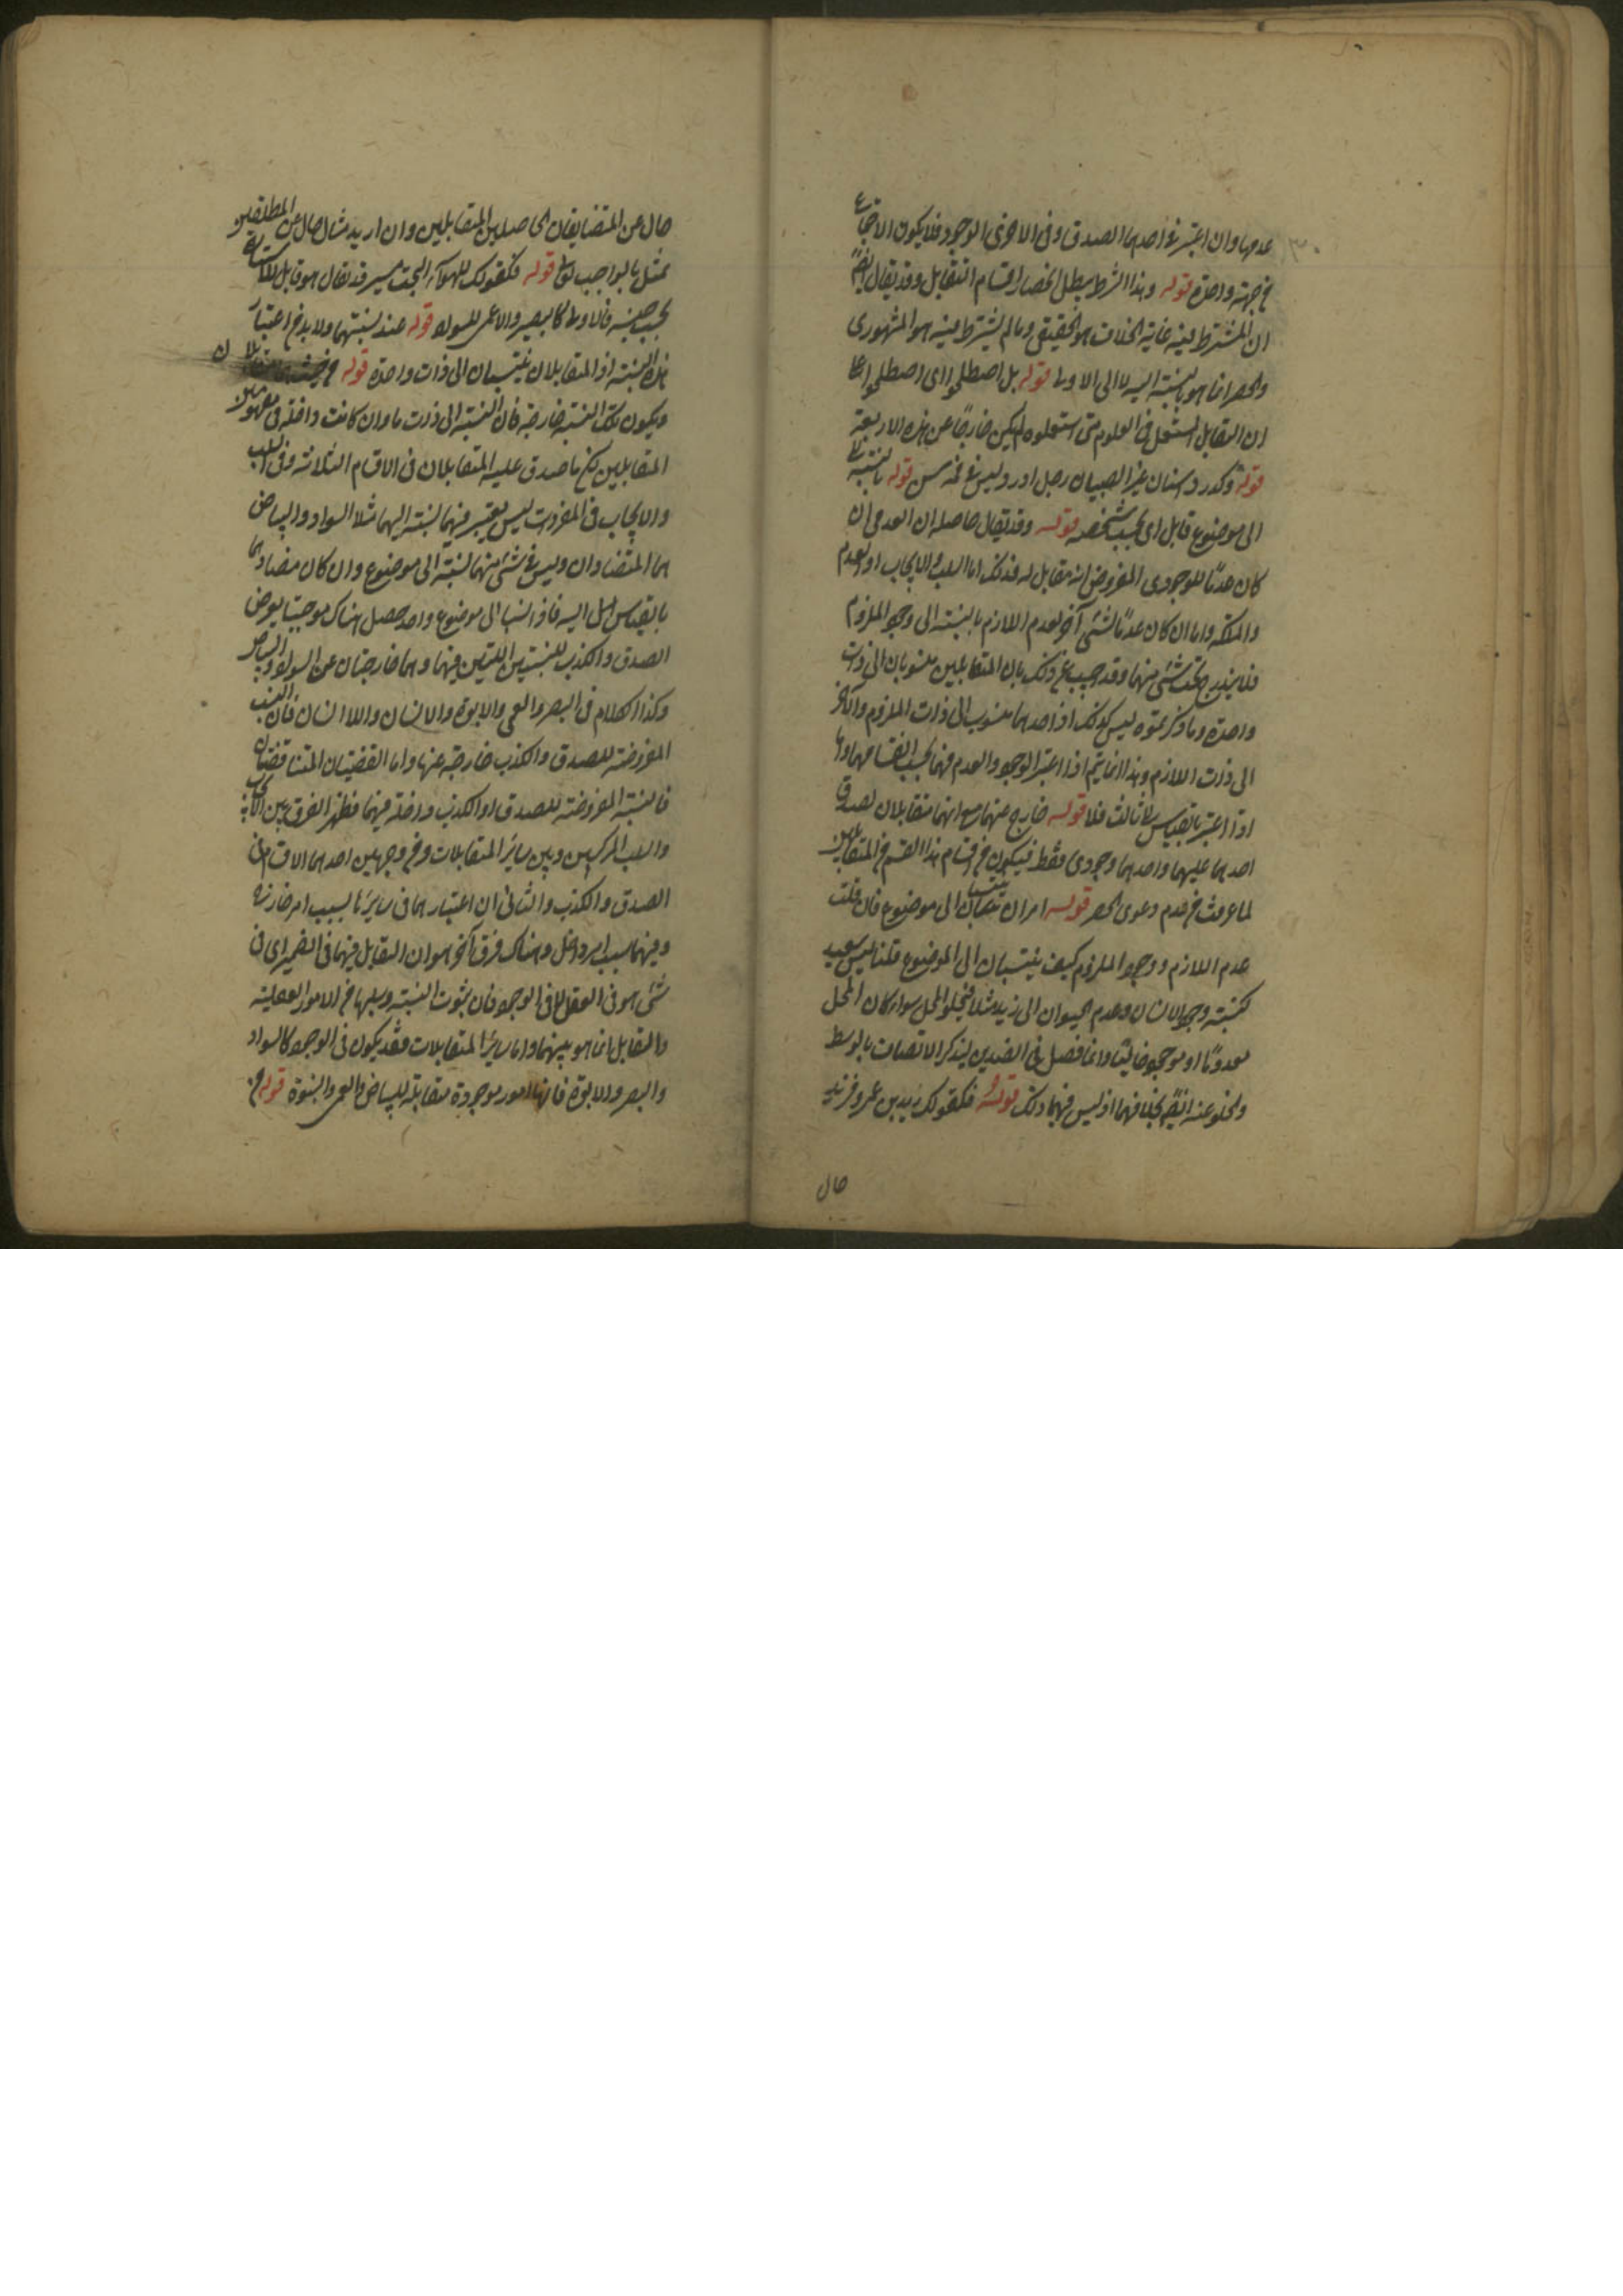 عدمها وان اعتبر فى احدهما الصدق وفى الاخرى الوجود فلا يكون الاجتماع
من جهة واحدة قوله وهذا الشرط يبطل انحصار اقسام التقابل وقد يقال ايضا
ان المشترط فيه غاية الخلاف هو الحقيقى وما لم يشترط فيه هو المشهورى
والحصر انما هو بالنسبة اليه لا الى الاول قوله بل اصطلحوا اى اصطلحوا على
ان التقابل المستعمل فى العلوم متى استعملوه لم يكن خارجا عن هذه الاربعة
قوله وكدرد اسنان عن الصبيان رجل ادرد ليس فى فمه سن قوله بالنسبة
الى موضوع قابل اى بحسب شخصه قوله وقد يقال حاصله ان العدمى ان
كان عدما للوجودى المفروض انه مقابل له فذلك اما السلب والايجاب او العدم
والملكة واما ان كان عدما لشئ آخر كعدم اللازم بالنسبة الى وجود الملزوم
فلا يندرج تحت شئ منهما وقد اجيب عن ذلك بان المتقابلين منسوبان الى ذات
واحدة وما ذكرتموه ليس كذلك اذ احدهما منسوب الى ذات الملزوم والآخر
الى ذات اللازم وهذا انما يتم اذا اعتبر الوجود والعدم فيهما بحسب انفسهما واما
اذا اعتبر بالقياس الى ثالث فلا قوله خارج عنهما مع انهما متقابلان لصدق
احدهما عليهما واحدهما وجودى فقط فيكون من اقسام هذا القسم من المتقابلين
لما عرفت من عدم دعوى الحصر قوله امران ينتسبان الى موضوع فان قلت
عدم اللازم ووجود الملزوم كيف ينتسبان الى الموضوع قلنا ليس ببعيد
كنسبة وجود الانسان وعدم الحيوان الى زيد مثلا فيخلو المحل سواء كان المحل
معدوما او موجودا خاليا وانما فصل فى الضدين ليذكر الاتصاف بالوسط
والخلو عنه ايضا بخلافهما اذ ليس فيهما ذلك قوله فكقولك زيد بن عمرو فزيد
حال
حال عن المتضايفان الحاصلين المتقابلين وان اريد مثال حال عن المطلقين
يمثل بالواجب تعالى قوله فكقولك للهواء البحت ليس قد يقال هو قابل للاستنارة
بحسب جنسه فالاولى كالبصير والاعمى للسواد قوله عند نسبتهما ولا بد من اعتبار
هذه النسبة اذ المتقابلان ينتسبان الى ذات واحدة قوله من حيث
ويكون تلك النسبة خارجة فان النسبة الى ذات ما وان كانت داخلة فى مفهومى
المتقابلين لكن ما صدق عليه المتقابلان فى الاقسام الثلاثة وفى السلب
والايجاب فى المفردات ليس يعتبر فيهما نسبة اليهما مثلا السواد والبياض
هما المتضادان وليس فى شئ منهما نسبة الى موضوع وان كان مضادتهما
بالقياس اليه فاذا نسبا الى موضوع واحد حصل هناك موجبتا يعرض
الصدق والكذب للنسبتين اللتين فيهما وهما خارجتان عن السواد والبياض
وكذا الكلام فى البصر والعمى والابوة والانسان واللا انسان فان النسب
المفروضة للصدق والكذب خارجة عنها واما القضيتان المتناقضتان
فالنسبة المفروضة للصدق او الكذب داخلة فيهما فظهر الفرق بين الايجاب
والسلب المركبين وبين سائر المتقابلات من وجهين احدهما الاقتسام فى
الصدق والكذب والثانى ان اعتبارهما فى سائرها بسبب امر خارج
وفيهما بسبب امر داخل وهناك فرق آخر هو ان التقابل فيهما فى الضمير اى فى
شئ هو فى العقل لا فى الوجود فان ثبوت النسبة وسلبها من الامور العقلية
والتقابل انما هو بينهما واما سائر المتقابلات فقد يكون فى الوجود كالسواد
والبصر والابوة فانها امور موجودة مقابلة للبياض والعمى والبنوة قوله من